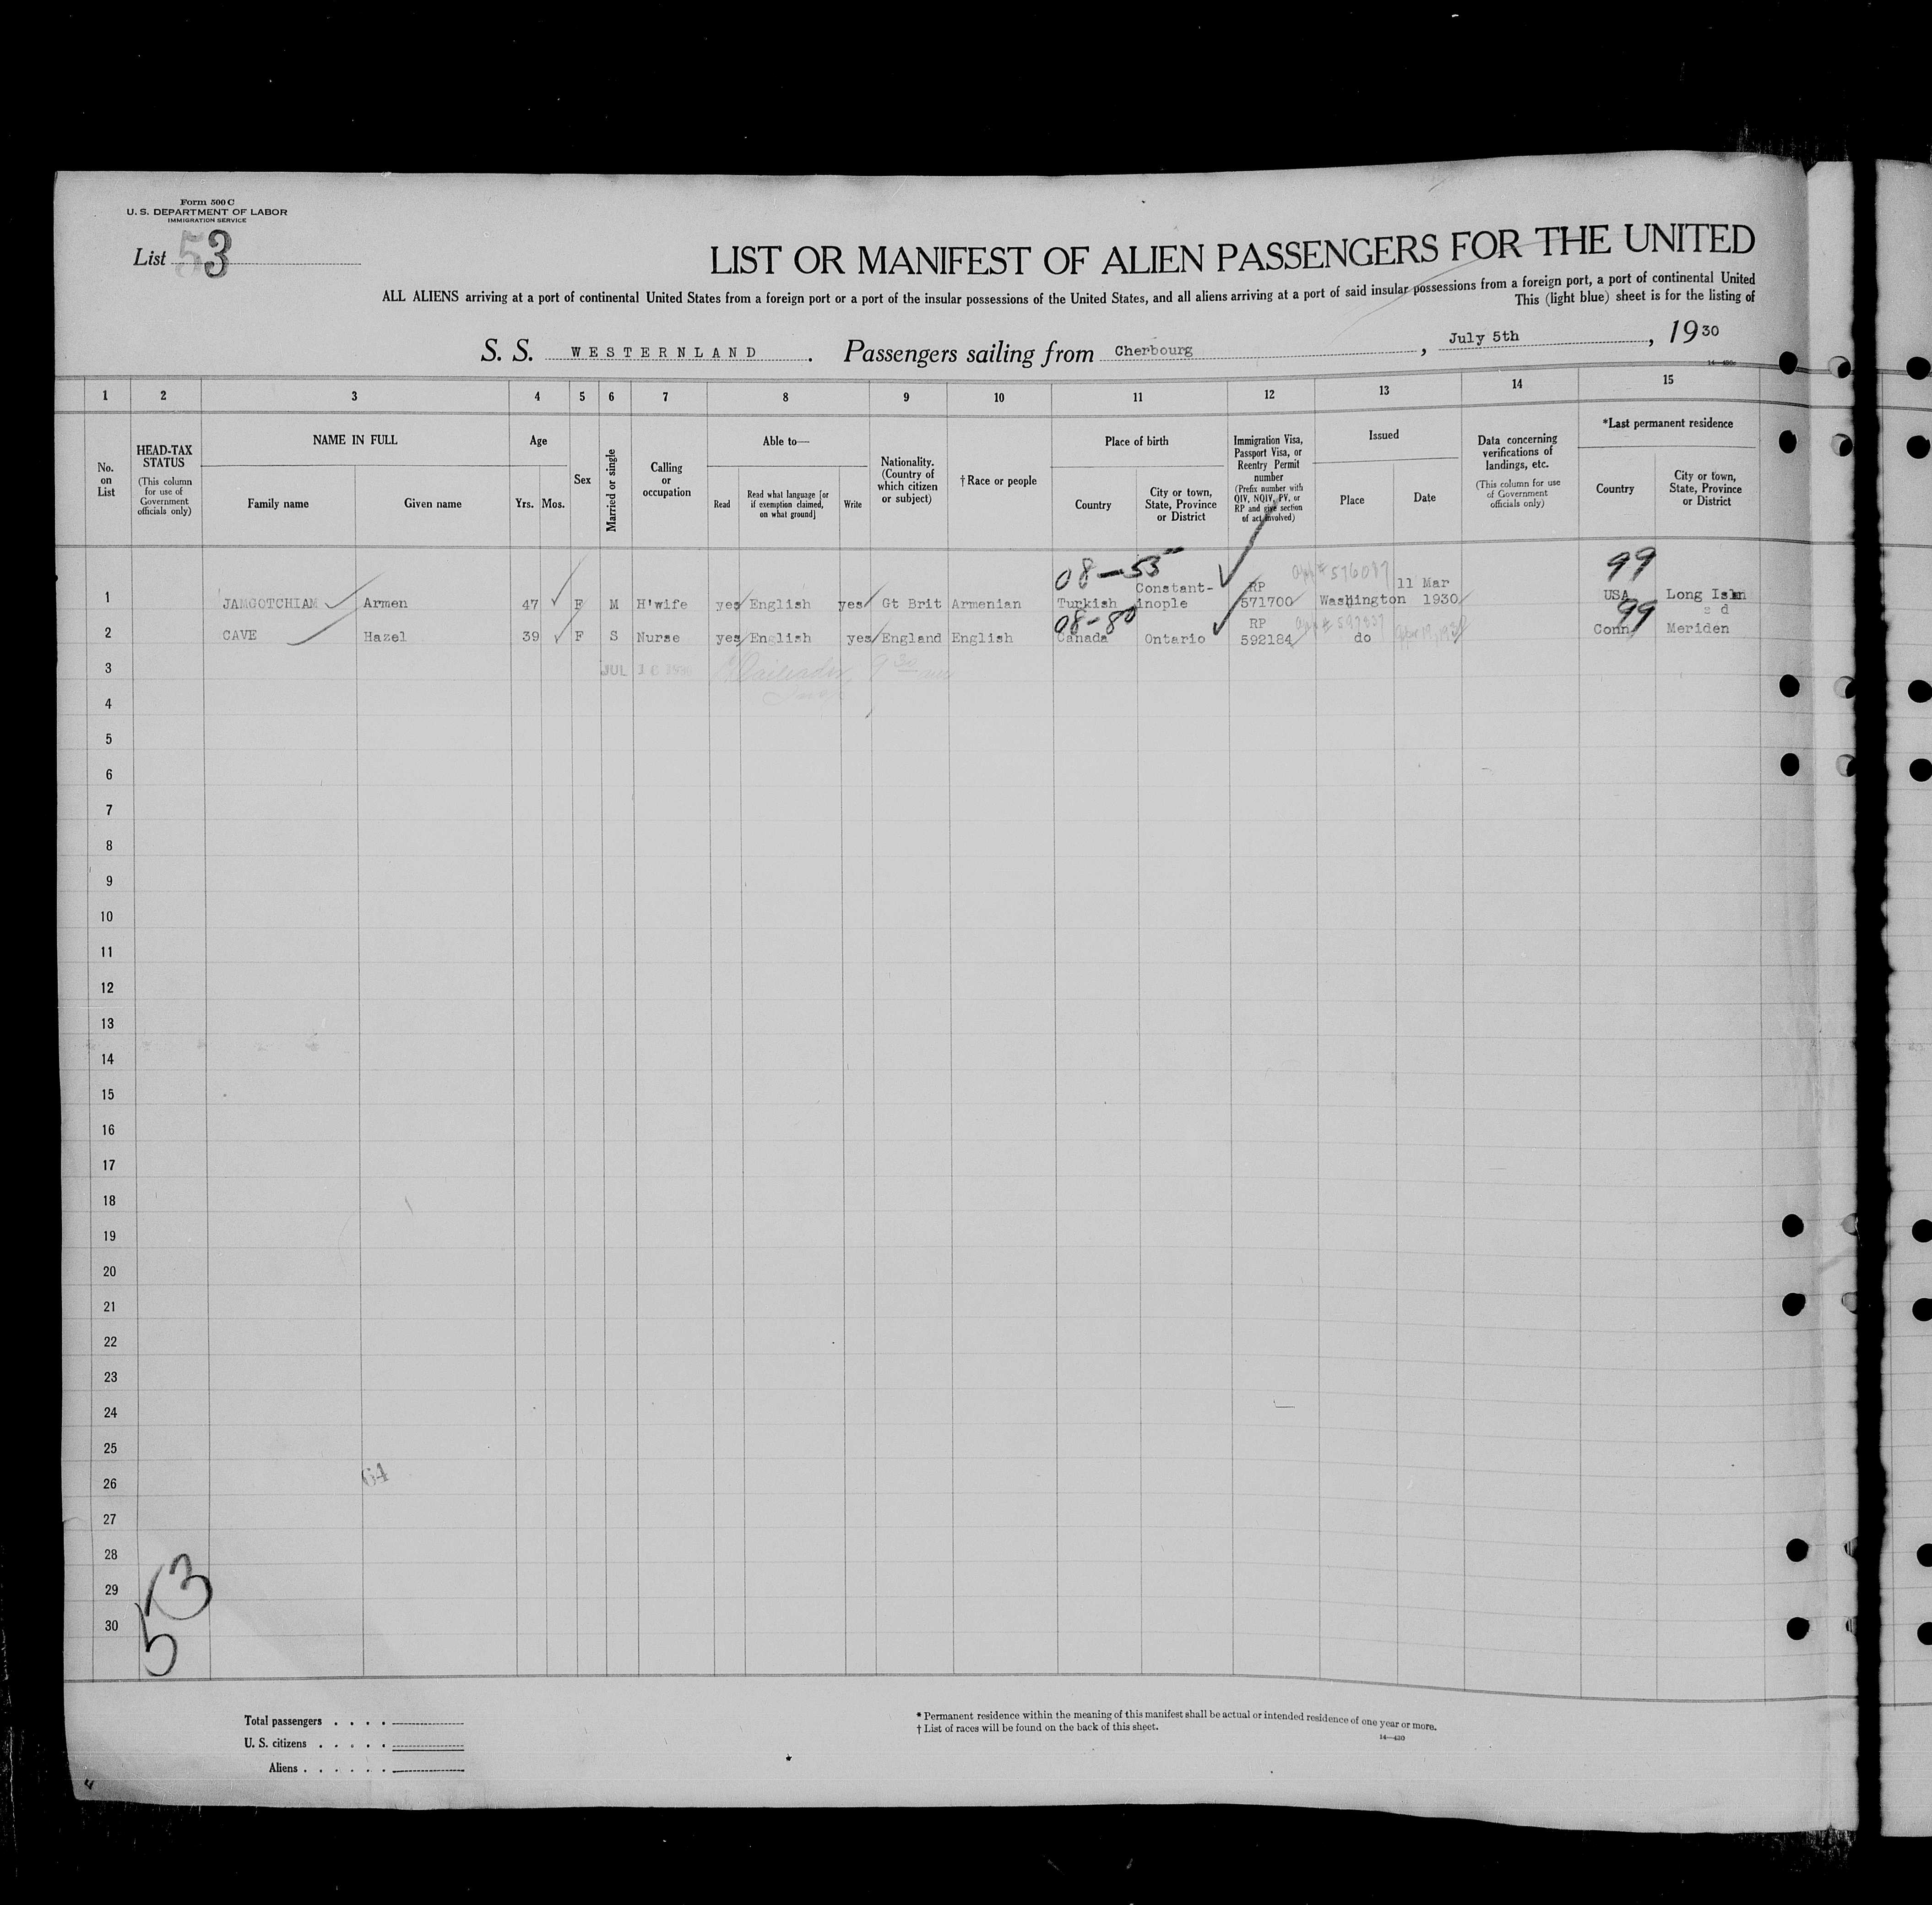 Form 500 C
U. S. DEPARTMENT OF LABOR
IMMIGRATION SERVICE
List 53
LIST OR MANIFEST OF ALIEN PASSENGERS FOR THE UNITED
ALL ALIENS arriving at a port of continental United States from a foreign port or a port of the insular possessions of the United States, and all aliens arriving at a port of said insular possessions from a foreign port, a port of continental United
This (light blue) sheet is for the listing of
S. S. WESTERNLAND. Passengers sailing from Cherbourg, July 5th, 1930
1 2 3 4 5 6 7 8 9 10 11 12 13 14 15
No. on List
HEAD-TAX STATUS
(This column for use of Government officials only)
NAME IN FULL
Family name
Given name
Age
Yrs. Mos.
Sex
Married or single
Calling or occupation
Able to—
Read
Read what language [or if exemption claimed, on what ground]
Write
Nationality. (Country of which citizen or subject)
†Race or people
Place of birth
Country
City or town, State, Province or District
Immigration Visa, Passport Visa, or Reentry Permit number
(Prefix number with QIV, NQIV, PV, or RP and give section of act involved)
Issued
Place
Date
Data concerning verifications of landings, etc.
(This column for use of Government officials only)
*Last permanent residence
Country
City or town, State, Province or District
08-55 99
Constant- RP 11 Mar
1 JAMGOTCHIAM Armen 47 F M H'wife yes English yes Gt Brit Armenian Turkish inople 571700 Washington 1930 USA Long Islan
08-80 RP 99 d
2 CAVE Hazel 39 F S Nurse yes English yes England English Canada Ontario 592184 do Conn Meriden
3 JUL 16 1930
4
5
6
7
8
9
10
11
12
13
14
15
16
17
18
19
20
21
22
23
24
25
26 64
27
28
29
30
53
Total passengers . . . .
U. S. citizens . . . . .
Aliens . . . . . .
* Permanent residence within the meaning of this manifest shall be actual or intended residence of one year or more.
† List of races will be found on the back of this sheet.
14—430